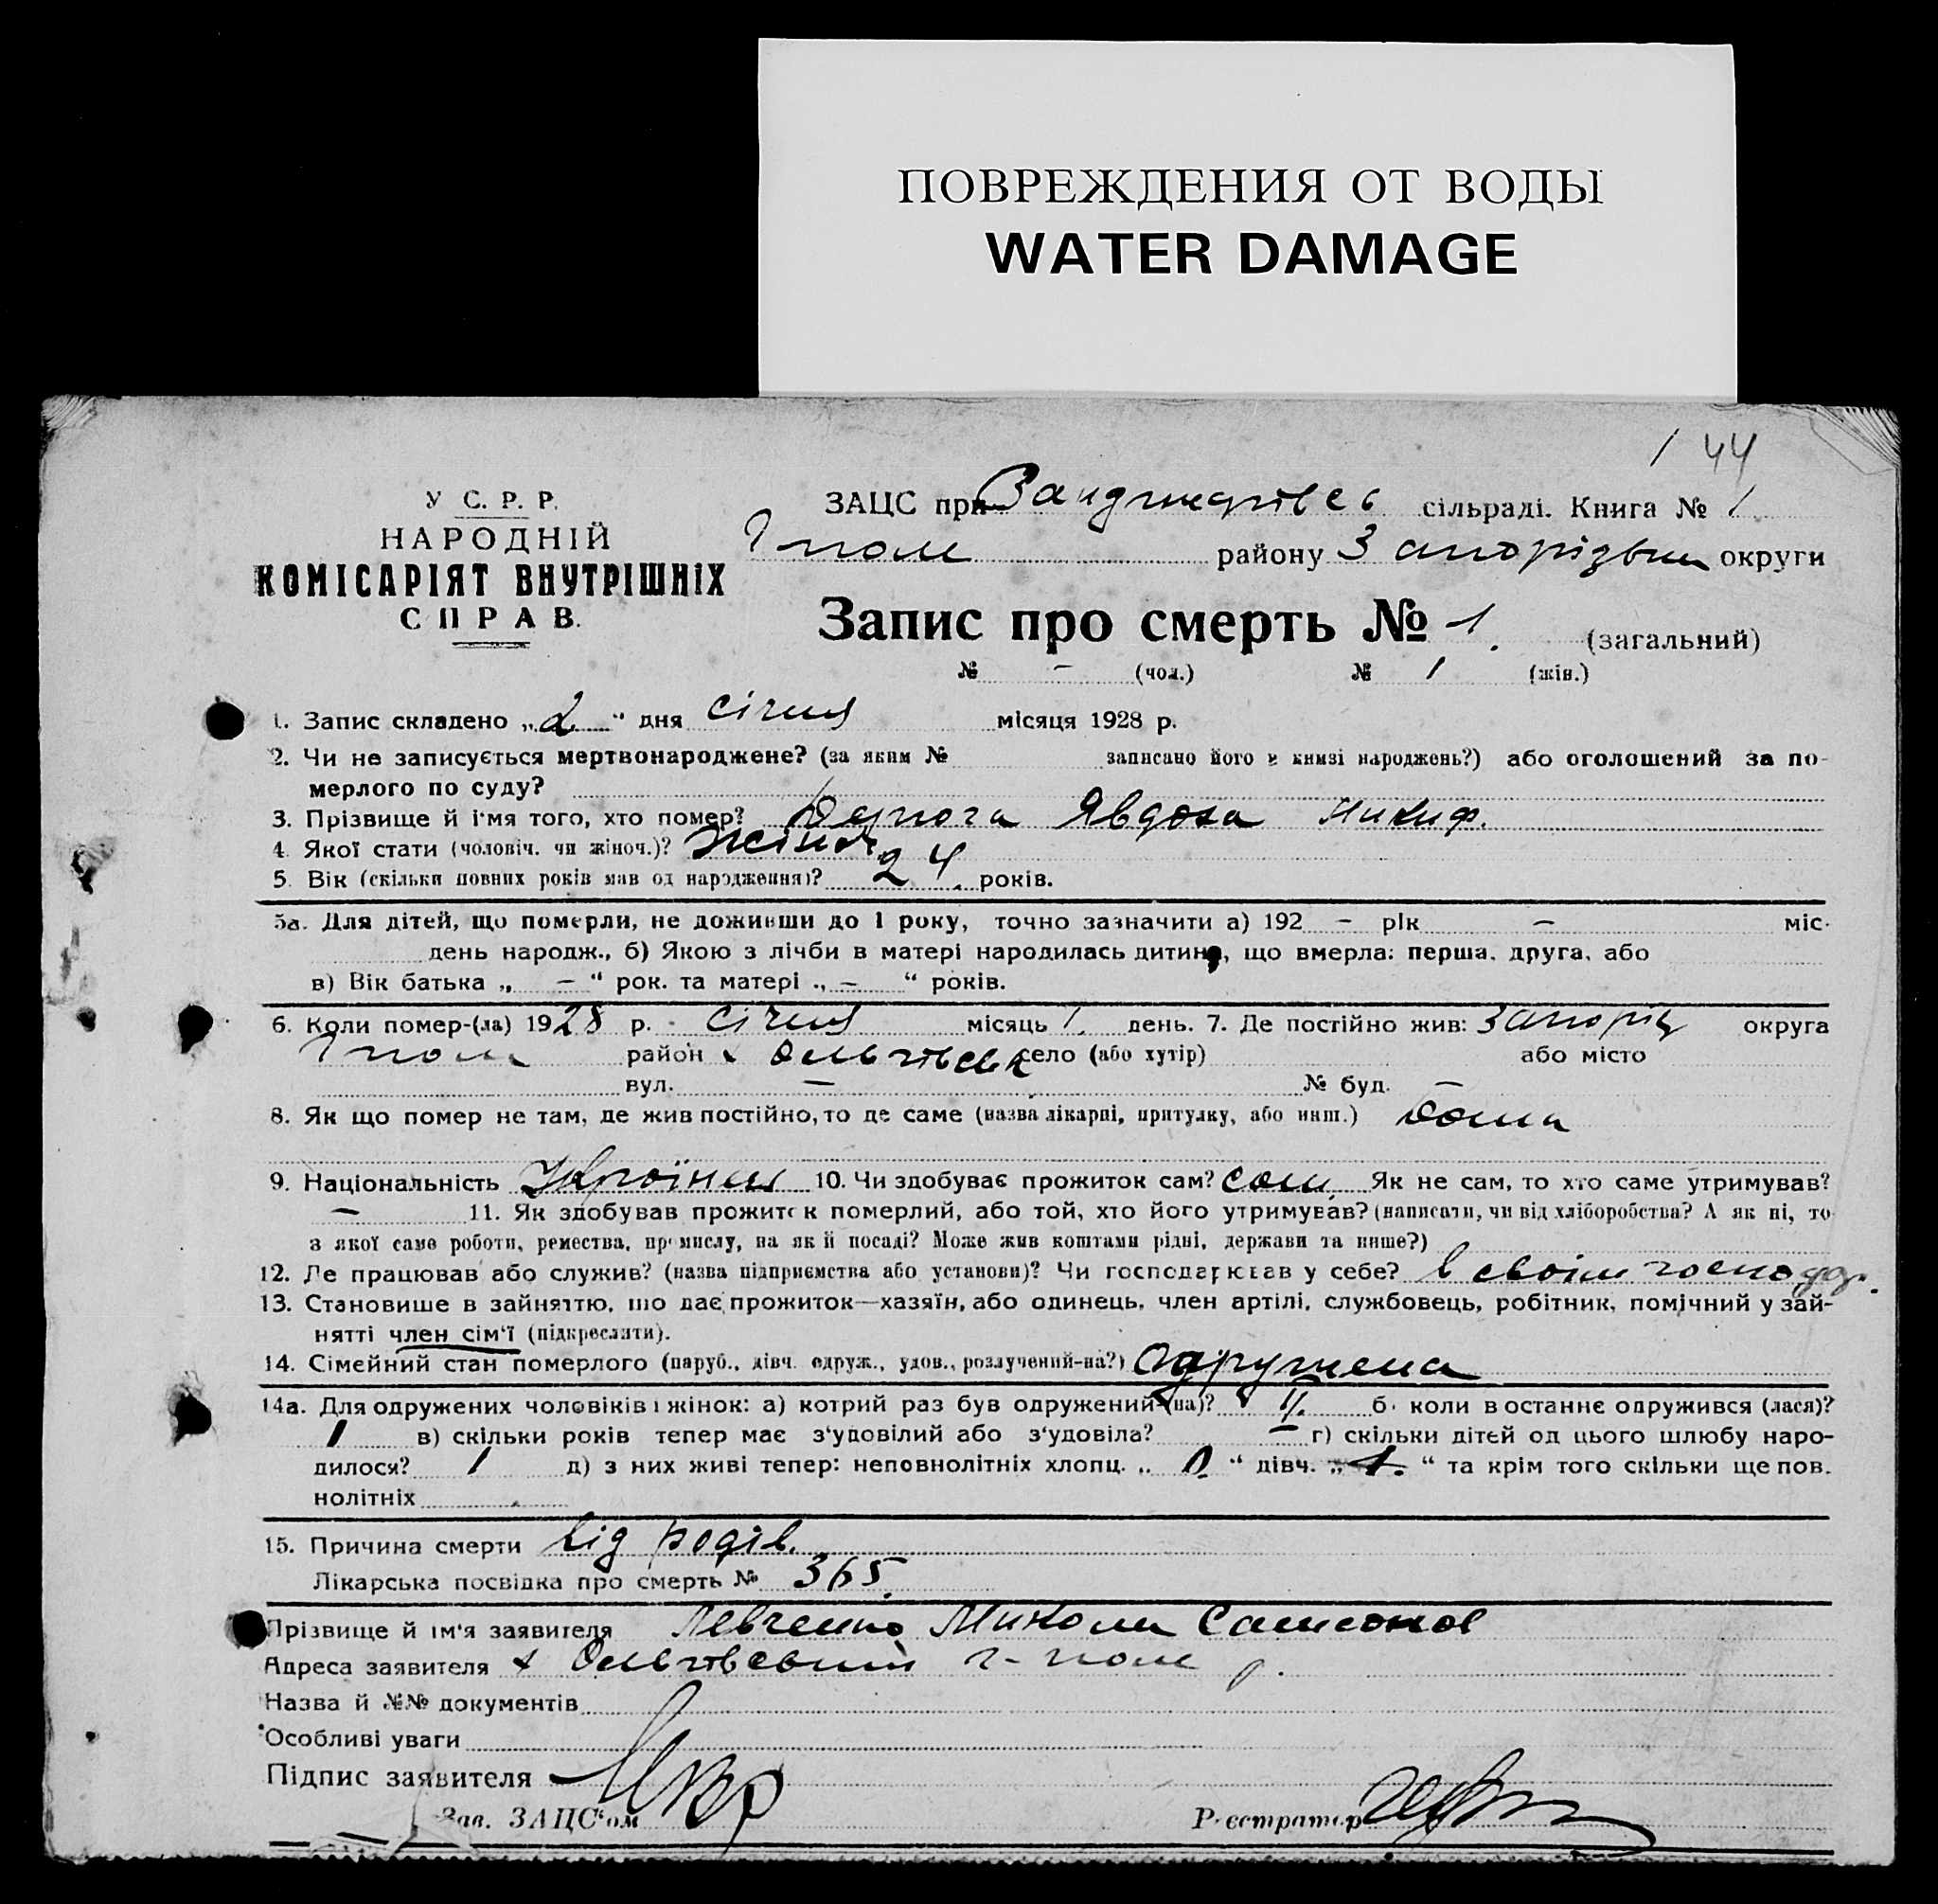 ПОВРЕЖДЕНИЯ ОТ ВОДЫ
WATER DAMAGE
144
У С. Р. Р.
НАРОДНІЙ
КОМІСАРІЯТ ВНУТРІШНІХ
СПРАВ.
ЗАЦС при сільраді. Книга № 1
Гполе району Запорізьки округи
Запис про смерть № 1. (загальний)
№ – (чол.) № 1 (жін.)
1. Запис складено „2" дня січня місяця 1928 р.
2. Чи не записується мертвонароджене? (за яким № записано його в книзі народжень?) або оголошений за по-
мерлого по суду?
3. Прізвище й ім'я того, хто помер? Явдоха Никиф.
4. Якої стати (чоловіч. чи жіноч.)? Жіноч.
5. Вік (скільки повних років мав од народження)? 24. років.
5а. Для дітей, що померли, не доживши до 1 року, точно зазначити а) 192 – рік – міс.
день народж., б) Якою з лічби в матері народилась дитина, що вмерла: перша, друга, або
в) Вік батька „ – " рок. та матері „ – " років.
6. Коли помер-(ла) 1928 р. січня місяць 1. день. 7. Де постійно жив: Запоріз округа
Гполе район х Ольгівськ село (або хутір) або місто
вул. – № буд. –
8. Як що помер не там, де жив постійно, то де саме (назва лікарні, притулку, або инш.) дома
9. Національність Україн 10. Чи здобуває прожиток сам? сам Як не сам, то хто саме утримував?
– 11. Як здобував прожиток померлий, або той, хто його утримував? (написати, чи від хліборобства? А як ні, то
з якої саме роботи, ремества, промислу, на якій посаді? Може жив коштами рідні, держави та инше?)
12. Де працював або служив? (назва підприємства або установи)? Чи господарював у себе? в своїм господар.
13. Становище в зайняттю, що дає прожиток—хазяїн, або одинець, член артілі, службовець, робітник, помічний у зай-
нятті член сім'ї (підкреслити).
14. Сімейний стан померлого (паруб., дівч. одруж., удов., розлучений-на?) Одружена
14а. Для одружених чоловіків і жінок: а) котрий раз був одружений-(на)? 1. б. коли востаннє одружився (лася)?
1 в) скільки років тепер має з'удовілий або з'удовіла? – г) скільки дітей од цього шлюбу наро-
дилося? 1 д) з них живі тепер: неповнолітніх хлопц. „ " дівч. „1." та крім того скільки ще пов.
нолітніх
15. Причина смерти від родів.
Лікарська посвідка про смерть № 365.
Прізвище й ім'я заявителя Левченко Микола Самсонов
Адреса заявителя х Ольгівський Г-поле р.
Назва й №№ документів
Особливі уваги
Підпис заявителя
Зав. ЗАЦС'ом Реєстратор